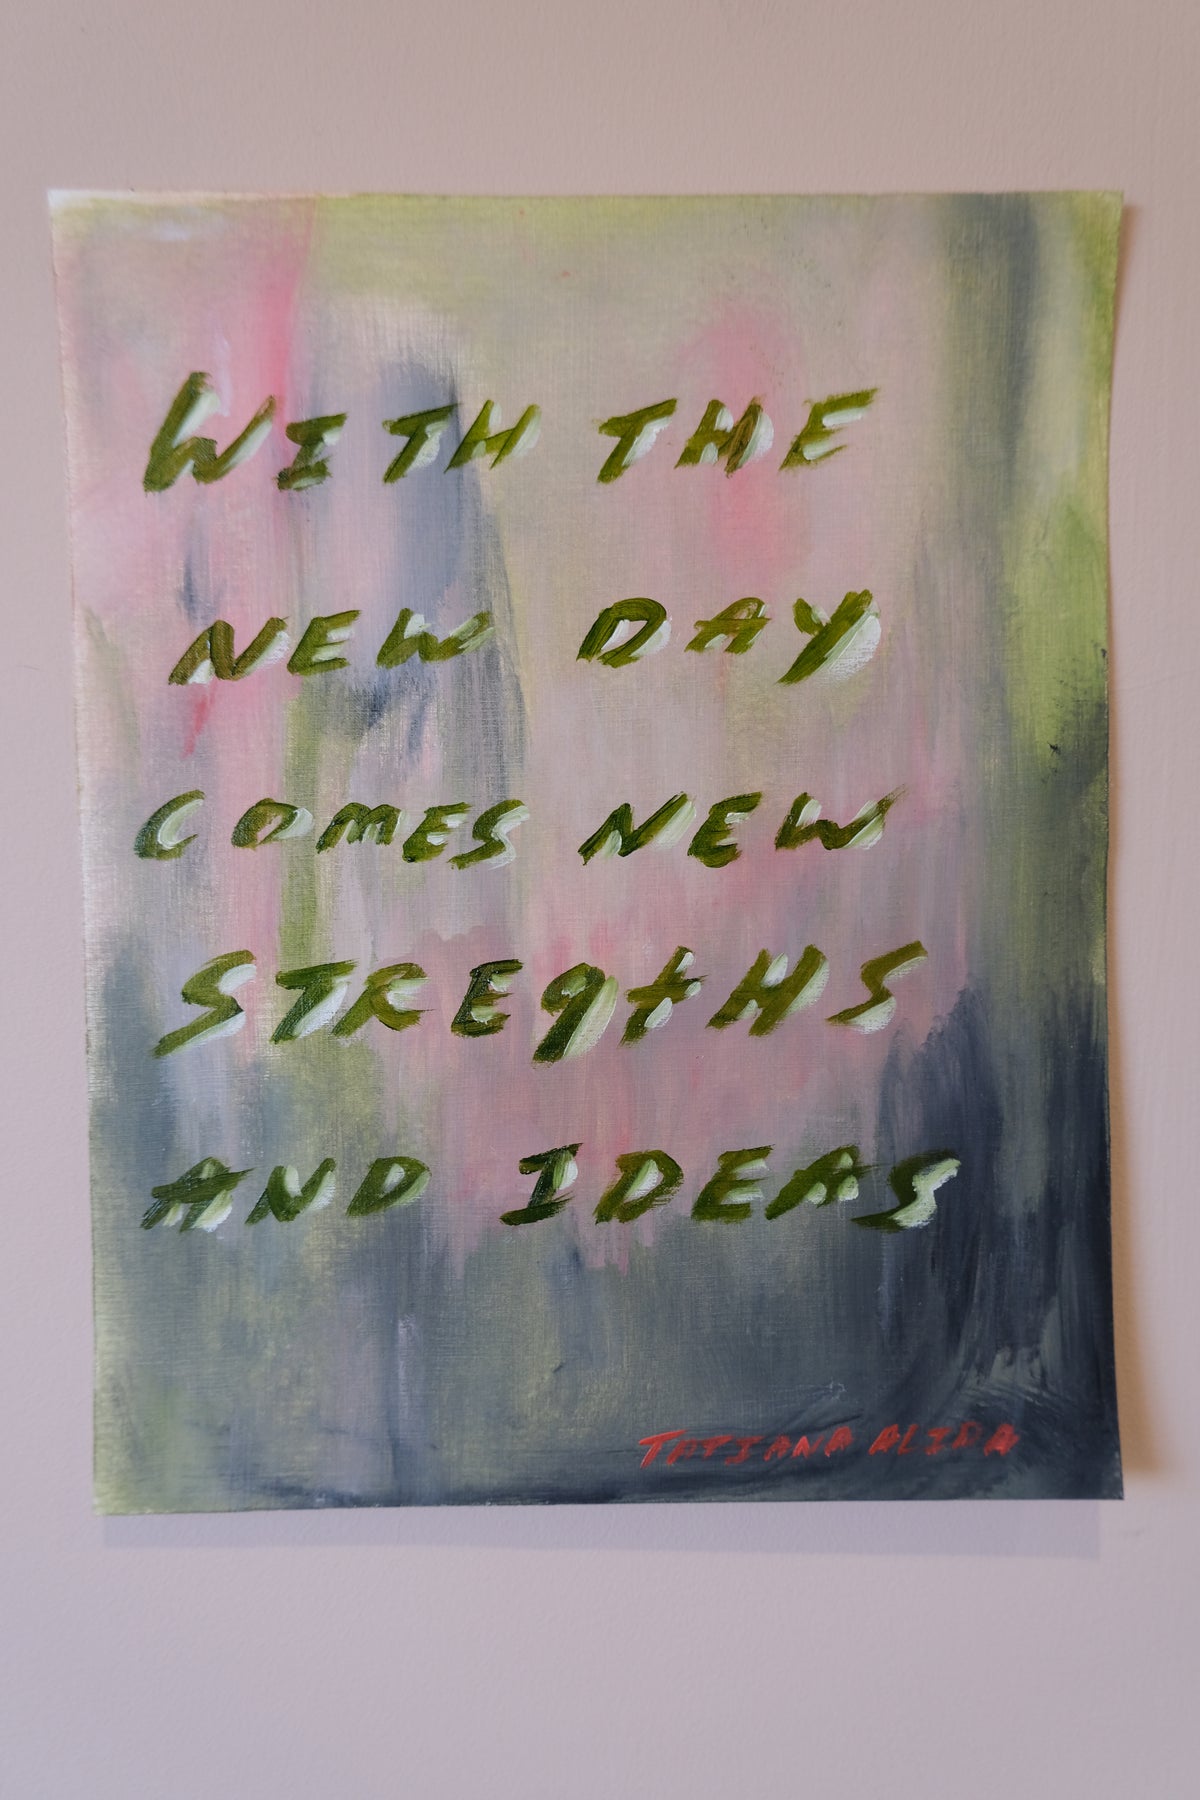 WITH THE
NEW DAY
COMES NEW
STREgtHS
AND IDEAS
TATJANA ALIDA